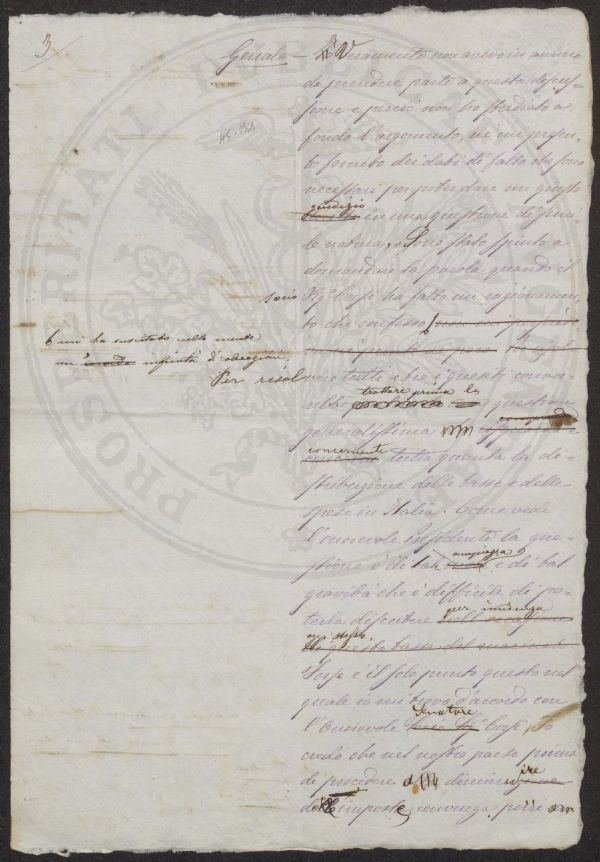 3
Genala — Veramente non avevo in animo
di prendere parte a questa discus-
sione e perciò non ho studiato a
fondo l'argomento, ne mi
fornito dei dati di fatto che sono
necessari per poter dare un giusto
giudizio in una questione di simi-
le natura. Sono stato spinto a
domandare la parola quando il
socio Sig. Corsi ha fatto un ragionamen-
to che confesso
6 mi ha suscitato nella mente
un' infinità d'obiezioni.
Per risol
vere tutti questi conver-
rebbe trattare prima la questione
generalissima
concernente tutta quanta la di-
stribuzione delle tasse e delle
spese in Italia. Come vede
l'onorevole Presidente la que-
stione è di tale ampiezza e di tal
gravità che è difficile di po-
terla discutere per incidenza
oggi stesso.
Forse è il solo punto questo nel
quale io mi trovo d'accordo con
l'Onorevole Senatore Corsi, Io
credo che nel nostro paese prima
di procedere a diminuire
le imposte, convenga porre